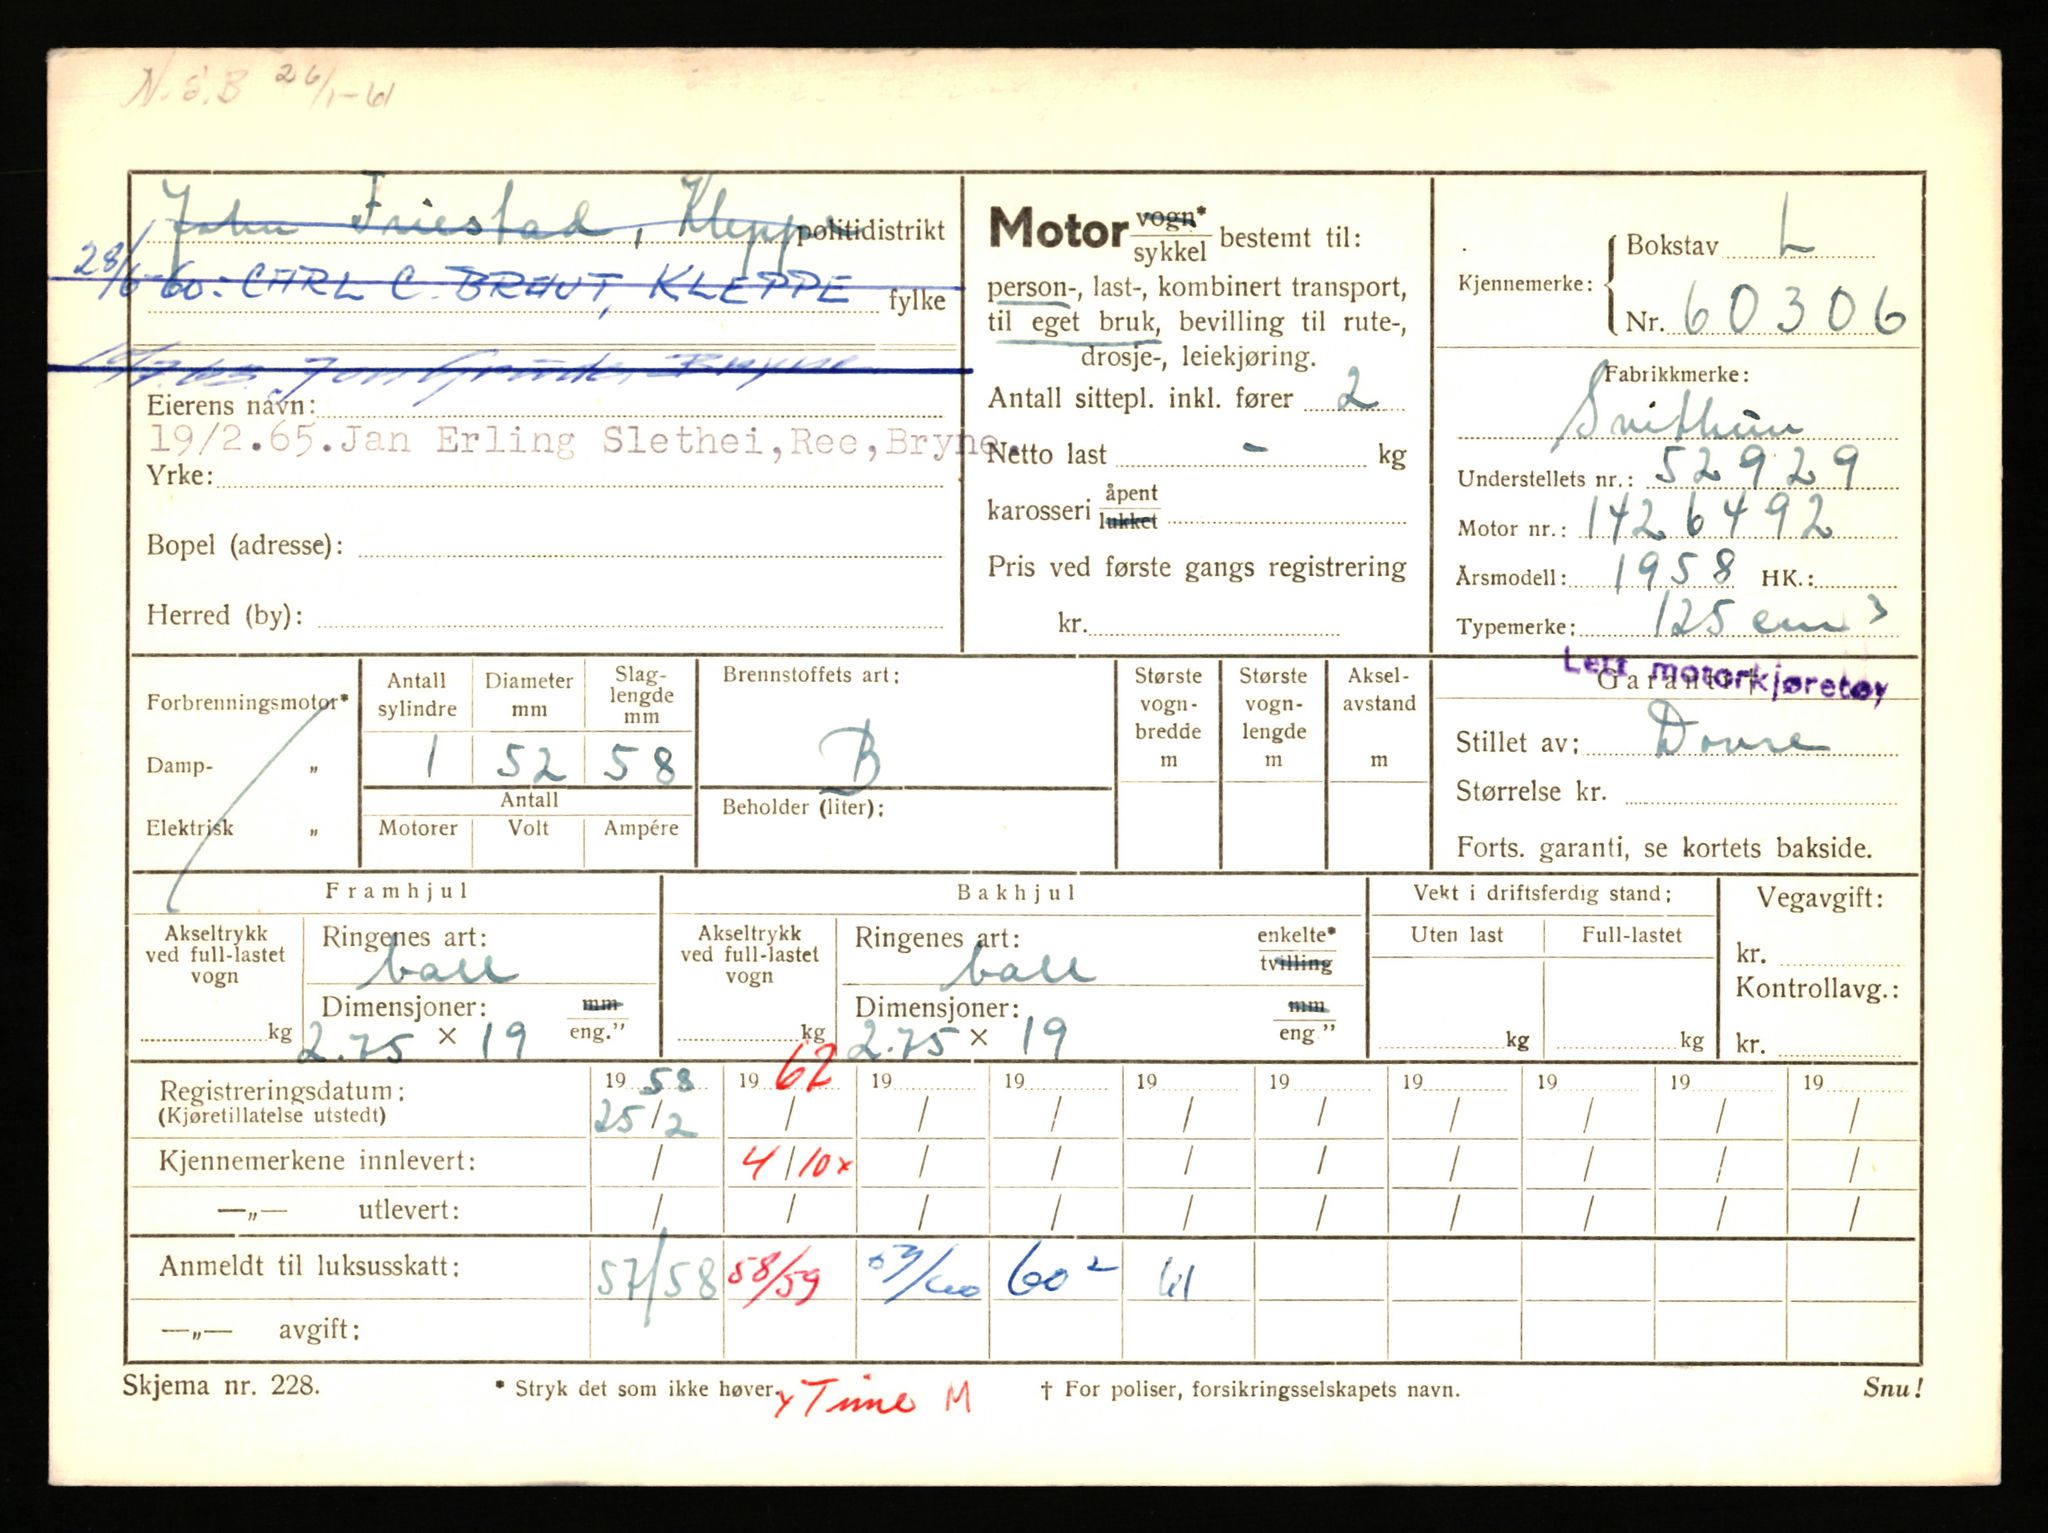 N.S.B 26/1-61
John Friestad, Kleppe politidistrikt
28/6-60: CARL C. BRAUT, KLEPPE fylke
Bryne
Eierens navn:
19/2.65.Jan Erling Slethei,Ree,Bryne.
Yrke:
Bopel (adresse):
Herred (by):
Motor vogn* sykkel bestemt til:
person-, last-, kombinert transport,
til eget bruk, bevilling til rute-,
drosje-, leiekjøring.
Antall sittepl. inkl. fører 2
Netto last - kg
karosseri åpent lukket
Pris ved første gangs registrering
kr.
Kjennemerke: Bokstav L
Nr. 60306
Fabrikkmerke:
Svithun
Understellets nr.: 52929
Motor nr.: 1426492
Årsmodell: 1958 HK.:
Typemerke: 125 cm3
Lett motorkjøretøy
Garanti†
Stillet av: Dovre
Størrelse kr.
Forts. garanti, se kortets bakside.
Forbrenningsmotor*
Damp- „
Elektrisk „
Antall sylindre Diameter mm Slag-lengde mm
1 52 58
Antall
Motorer Volt Ampére
Brennstoffets art:
B
Beholder (liter):
Største vogn-bredde m Største vogn-lengde m Aksel-avstand m
Framhjul
Akseltrykk ved full-lastet vogn
kg
Ringenes art:
ball
Dimensjoner: mm eng."
2.75 x 19
Bakhjul
Akseltrykk ved full-lastet vogn
kg
Ringenes art: enkelte* tvilling
ball
Dimensjoner: mm eng"
2.75 x 19
Vekt i driftsferdig stand:
Uten last Full-lastet
kg kg
Vegavgift:
kr.
Kontrollavg.:
kr.
Registreringsdatum: 19 58 19 62 19 19 19 19 19 19 19 19
(Kjøretillatelse utstedt) 25/2 / / / / / / / / /
Kjennemerkene innlevert: / 4/10x / / / / / / / /
—„— utlevert: / / / / / / / / / /
Anmeldt til luksusskatt: 57/58 58/59 59/60 60 2 61
—„— avgift:
Skjema nr. 228. * Stryk det som ikke høver. x Time M † For poliser, forsikringsselskapets navn. Snu!